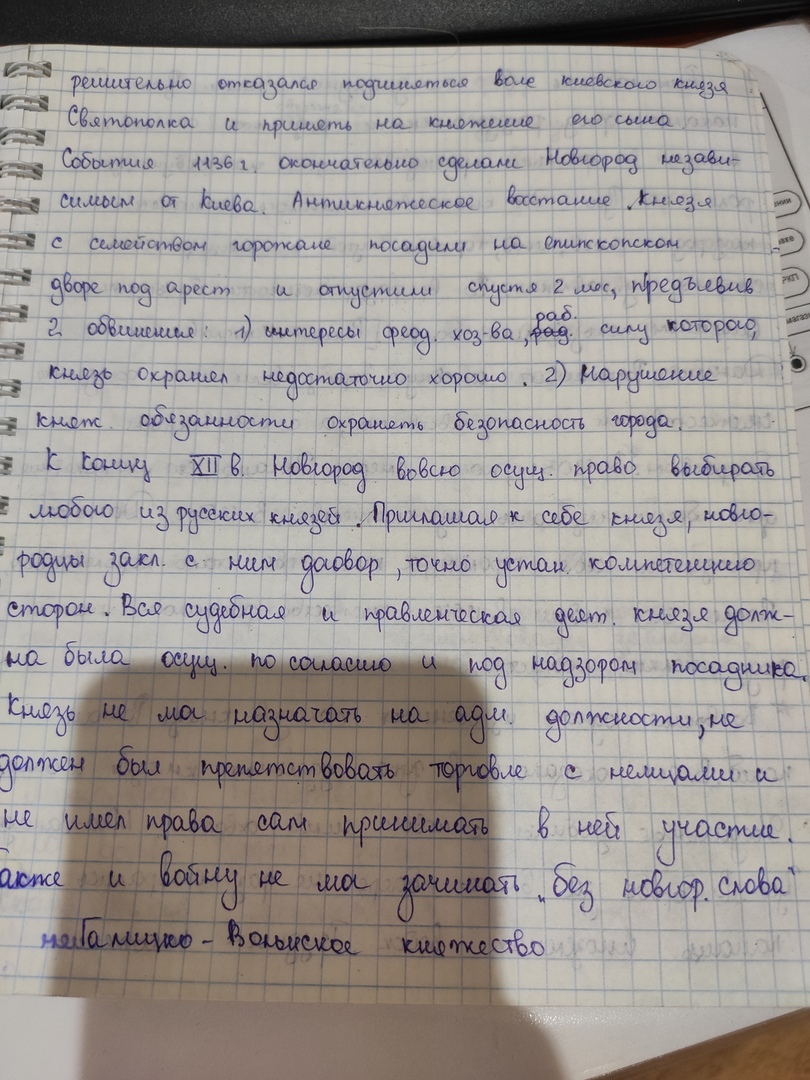 решительно отказался подчиняться воле киевского князя
Святополка и принять на княжение его сына.
События 1136 г. окончательно сделали Новгород незави-
симым от Киева. Антикняжеское восстание. Князя
с семейством горожане посадили на епископском
дворе под арест и отпустили спустя 2 мес, предъявив
раб.
2 обвинения: 1) интересы феод. хоз-ва, силу которого,
князь охранял недостаточно хорошо. 2) Нарушение
княж. обязанности охранять безопасность города.
К концу XII в. Новгород вовсю осущ. право выбирать
любого из русских князей. Приглашая к себе князя, новго-
родцы закл. с ним даовор, точно устан. компетенцию
сторон. Вся судебная и правленческая деят. князя долж-
на была осущ. по согласию и под надзором посадника.
Князь не мог назначать на адм. должности, не
должен был препятствовать торговле с немцами и
не имел права сам принимать в ней участие.
акже и войну не мог зачинать „без новгор. слова"
Галицко-Волынское княжество
нии
РКП
магаз